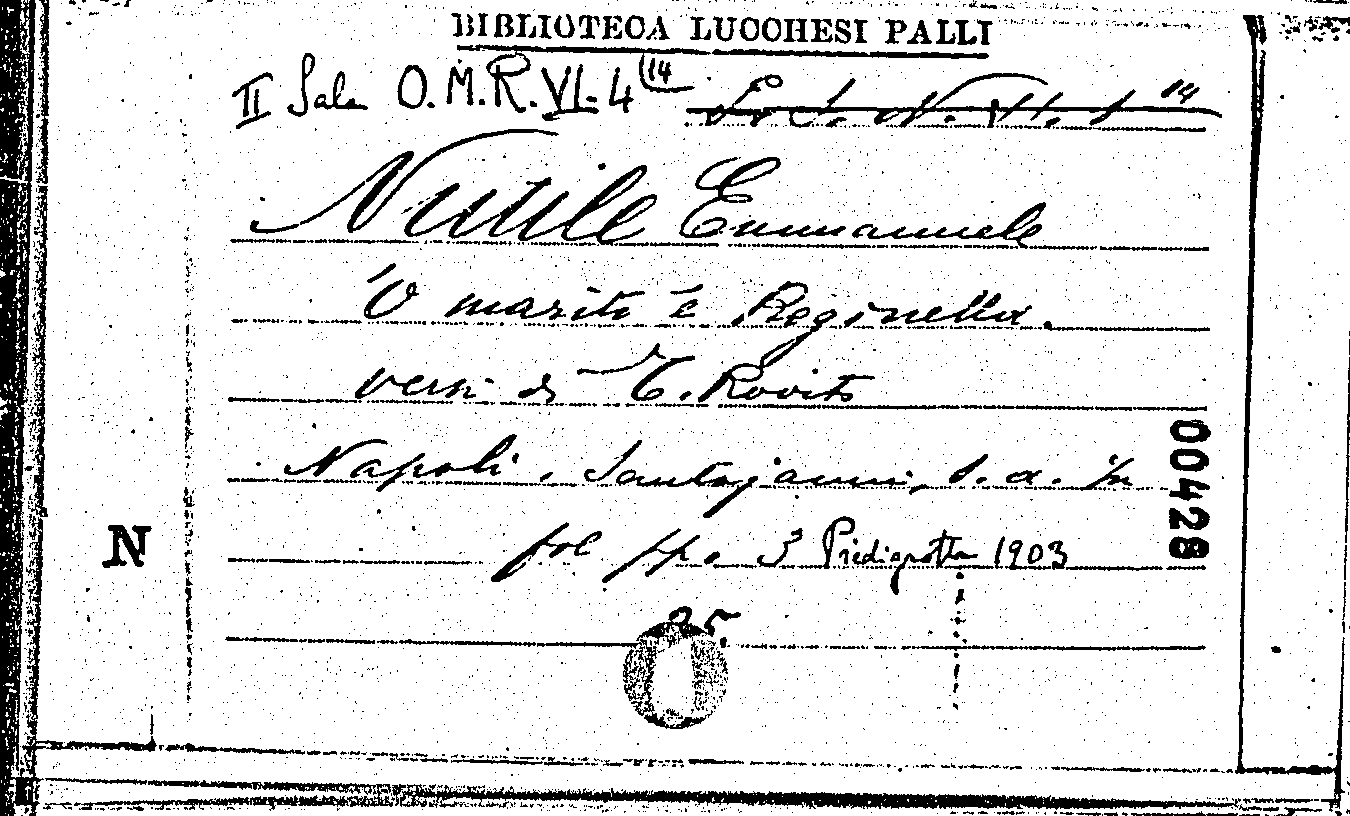 BIBLIOTECA LUCCHESI PALLI
II Sala O.M.R. VI. 4 (14
Nutile Emmanuele
'O marito 'e Reginella.
versi di E. Rovito
Napoli, Santojanni, s. a. in
fol pp. 3 Piedigrotta 1903
25
N
00428